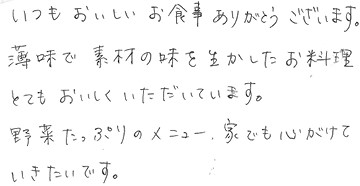 いつもおいしいお食事ありがとうございます。
薄味で素材の味を生かしたお料理
とてもおいしくいただいています。
野菜たっぷりのメニュー、家でも心がけて
いきたいです。